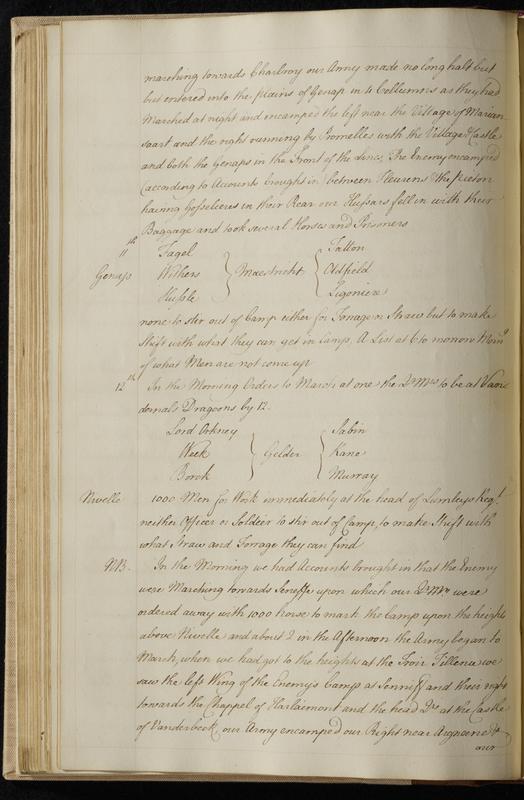 marching towards Charlroy our Army made no long halt but
but entered into the plains of Genap in 4 Collumns as they had
Marched at night and encamped the left near the Village of Marian
saart and the right running by Promelles with the Village & Castle
and both the Genaps in the Front of the Line, The Enemy encamped
(according to Accounts brought in) between Fleurens & the Pieton
having Gosselieres in their Rear our Hussars fell in with their
Baggage and took several Horses and Prisoners
11th Fagel Tatton
Genap Withers Maestricht Oldfield
Hussle Ligoniere
none to stir out of Camp either for Forage or Straw but to make
Shift with what they can get in Camp, A List at 6 to morrow Morng
of what Men are not come up
12th In the Morning Orders to March at one the Qr Mrs to be at Vaan
demals Dragoons by 12.
Lord Orkney Sabin
Week Gelder Kane
Borck Murray
Nivelle 1000 Men for Work immediately at the head of Lumleys Regt
neither Officer or Soldier to stir out of Camp, to make Shift with
what Straw and Forrage they can find
NB. In the Morning we had Accounts brought in that the Enemy
were Marching towards Seneffe upon which our Qr Mrs were
ordered away with 1000 horse to mark the Camp upon the heights
above Nivelle and about 2 in the Afternoon the Army began to
March, when we had got to the heights at the Trois Tilleuls we
saw the left Wing of the Enemy's Camp at Senniff and their right
towards the Chappel of Harlaimont and the head Qrs at the Castle
of Vanderbeck, our Army encamped our Right near &
our